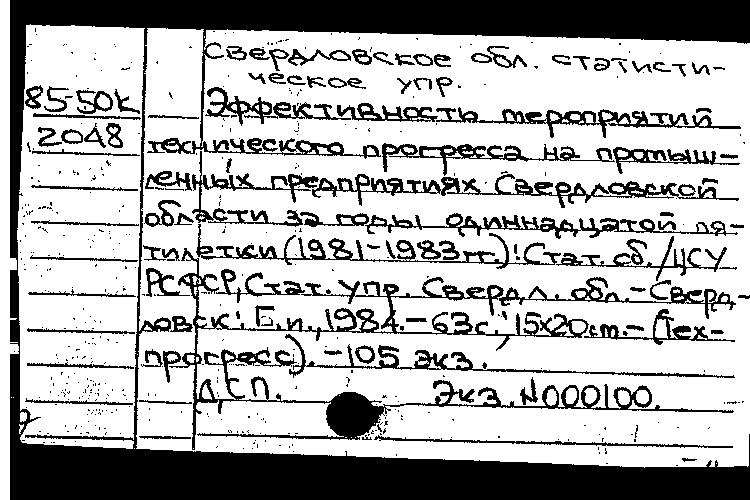 Свердловское обл. статисти-
ческое упр.
85-50к
2048
Эффективность мероприятий
технического прогресса на промыш-
ленных предприятиях Свердловской
области за годы одиннадцатой пя-
тилетки (1981-1983гг.): Стат. сб. / ЦСУ
РСФСР, Стат. упр. Свердл. обл. - Сверд-
ловск: Б.и., 1984. - 63с.; 15х20см. - (Тех-
прогресс). - 105 экз.
ДСП. Экз. N000100.